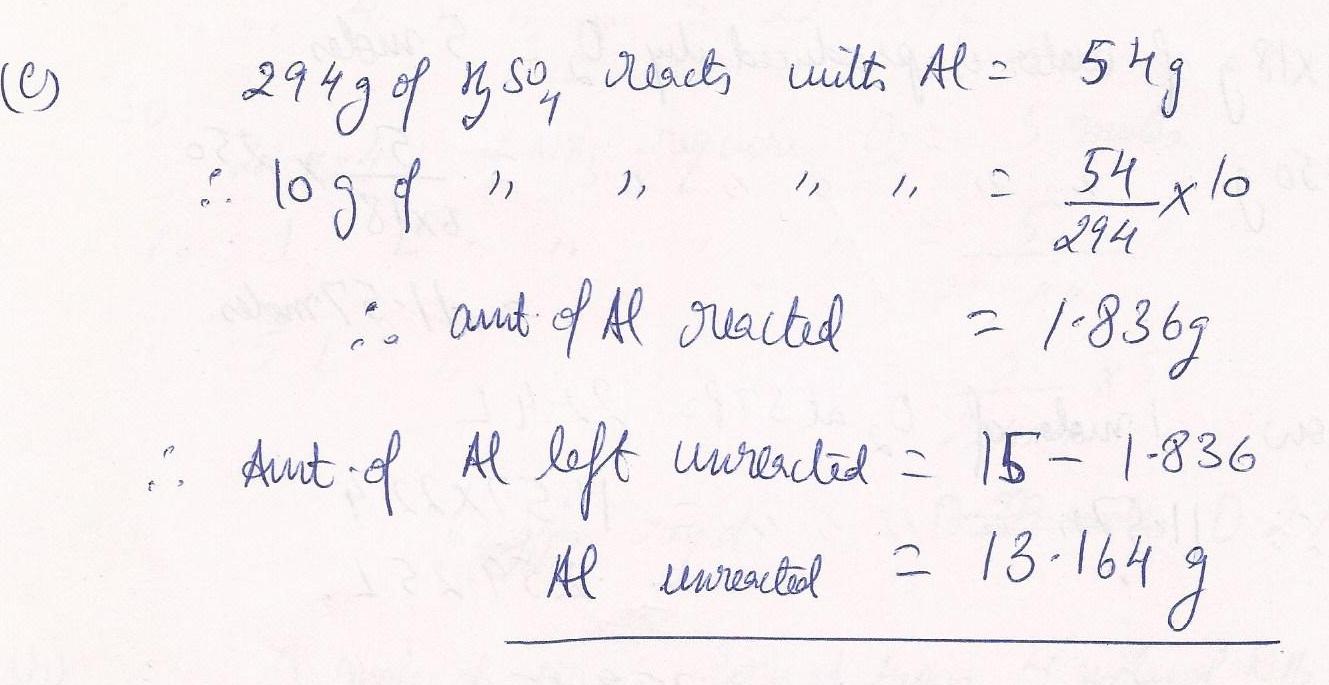 (C) 294g of H2SO4 reacts with Al = 54g
∴ 10 g of ,, ,, ,, ,, = 54/294 × 10
∴ amt. of Al reacted = 1.836g
∴ Amt. of Al left unreacted = 15 - 1.836
Al unreacted = 13.164 g